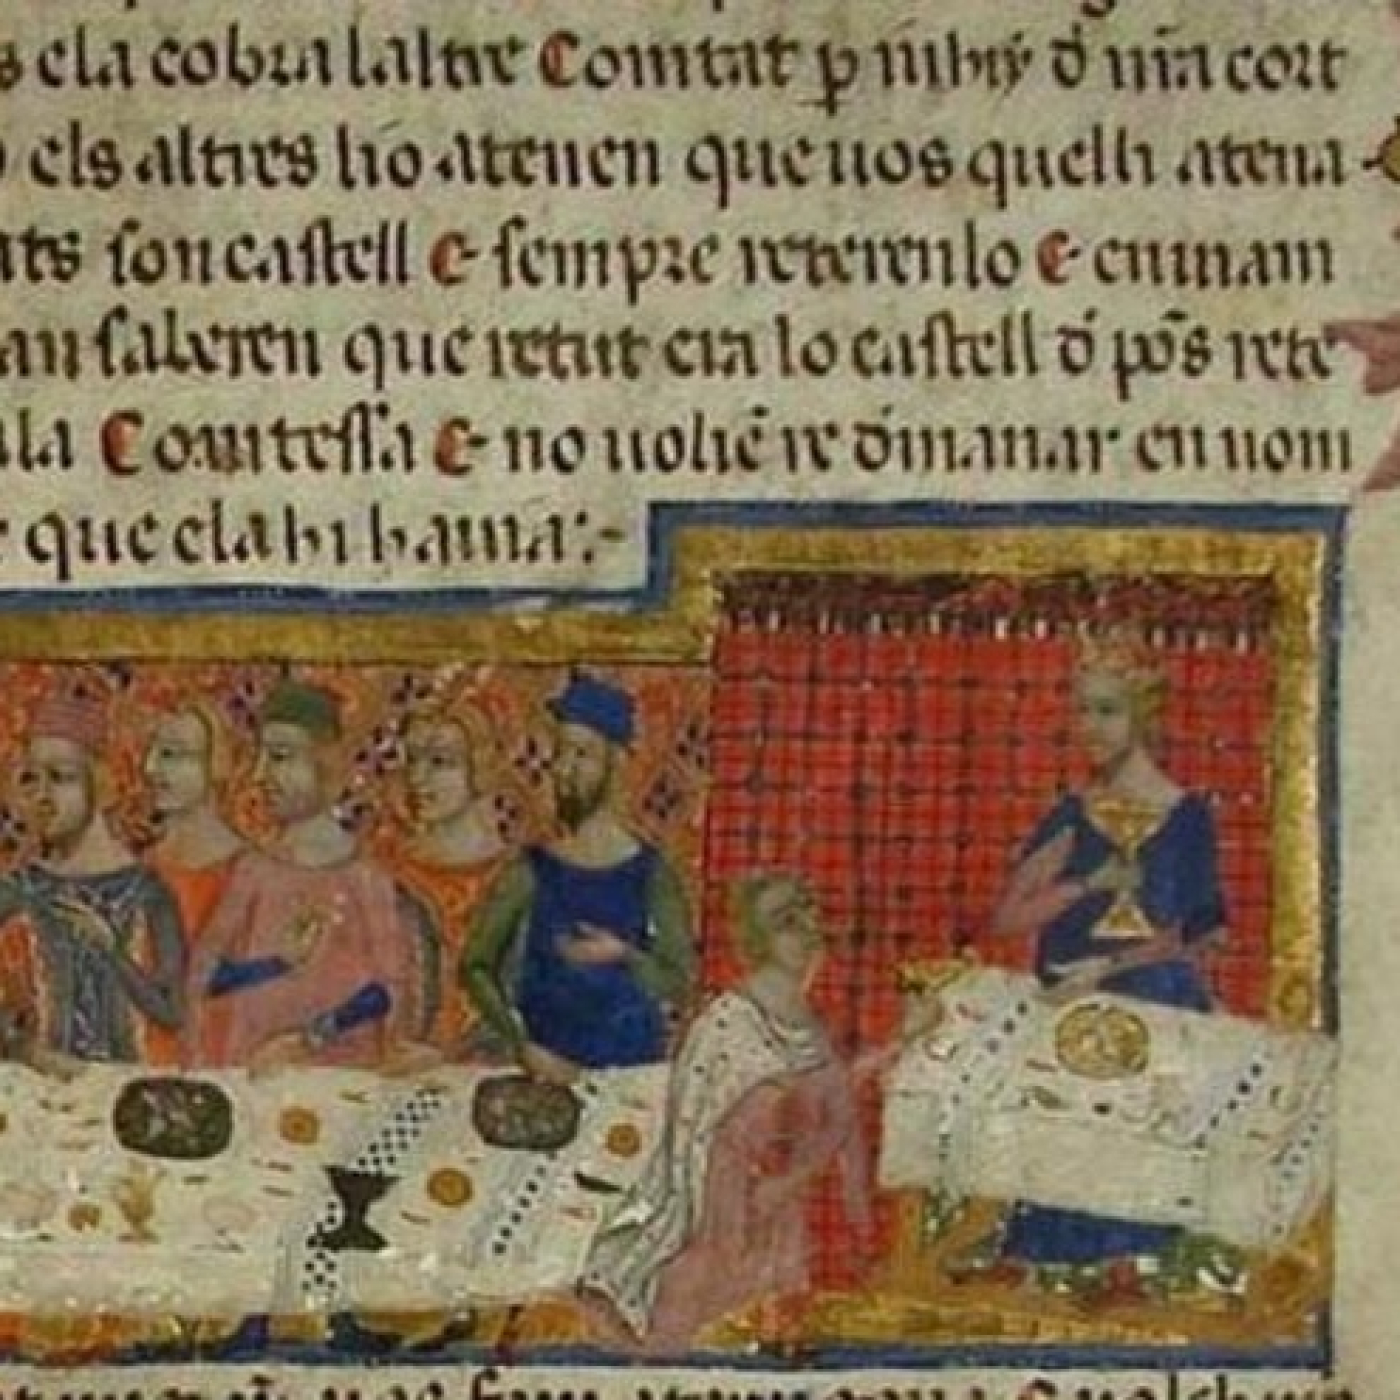 s ela cobra laltre Comtat p iuhiẏ đ ńra cort
els altres lio atenen que uos quelli atena
ats son castell E sempre reteren lo E cuinam
an saberen que retut era lo castell đ pōs rete
ala Comtessa E no uoliē re đmanar en nom
que ela hi hauia:-